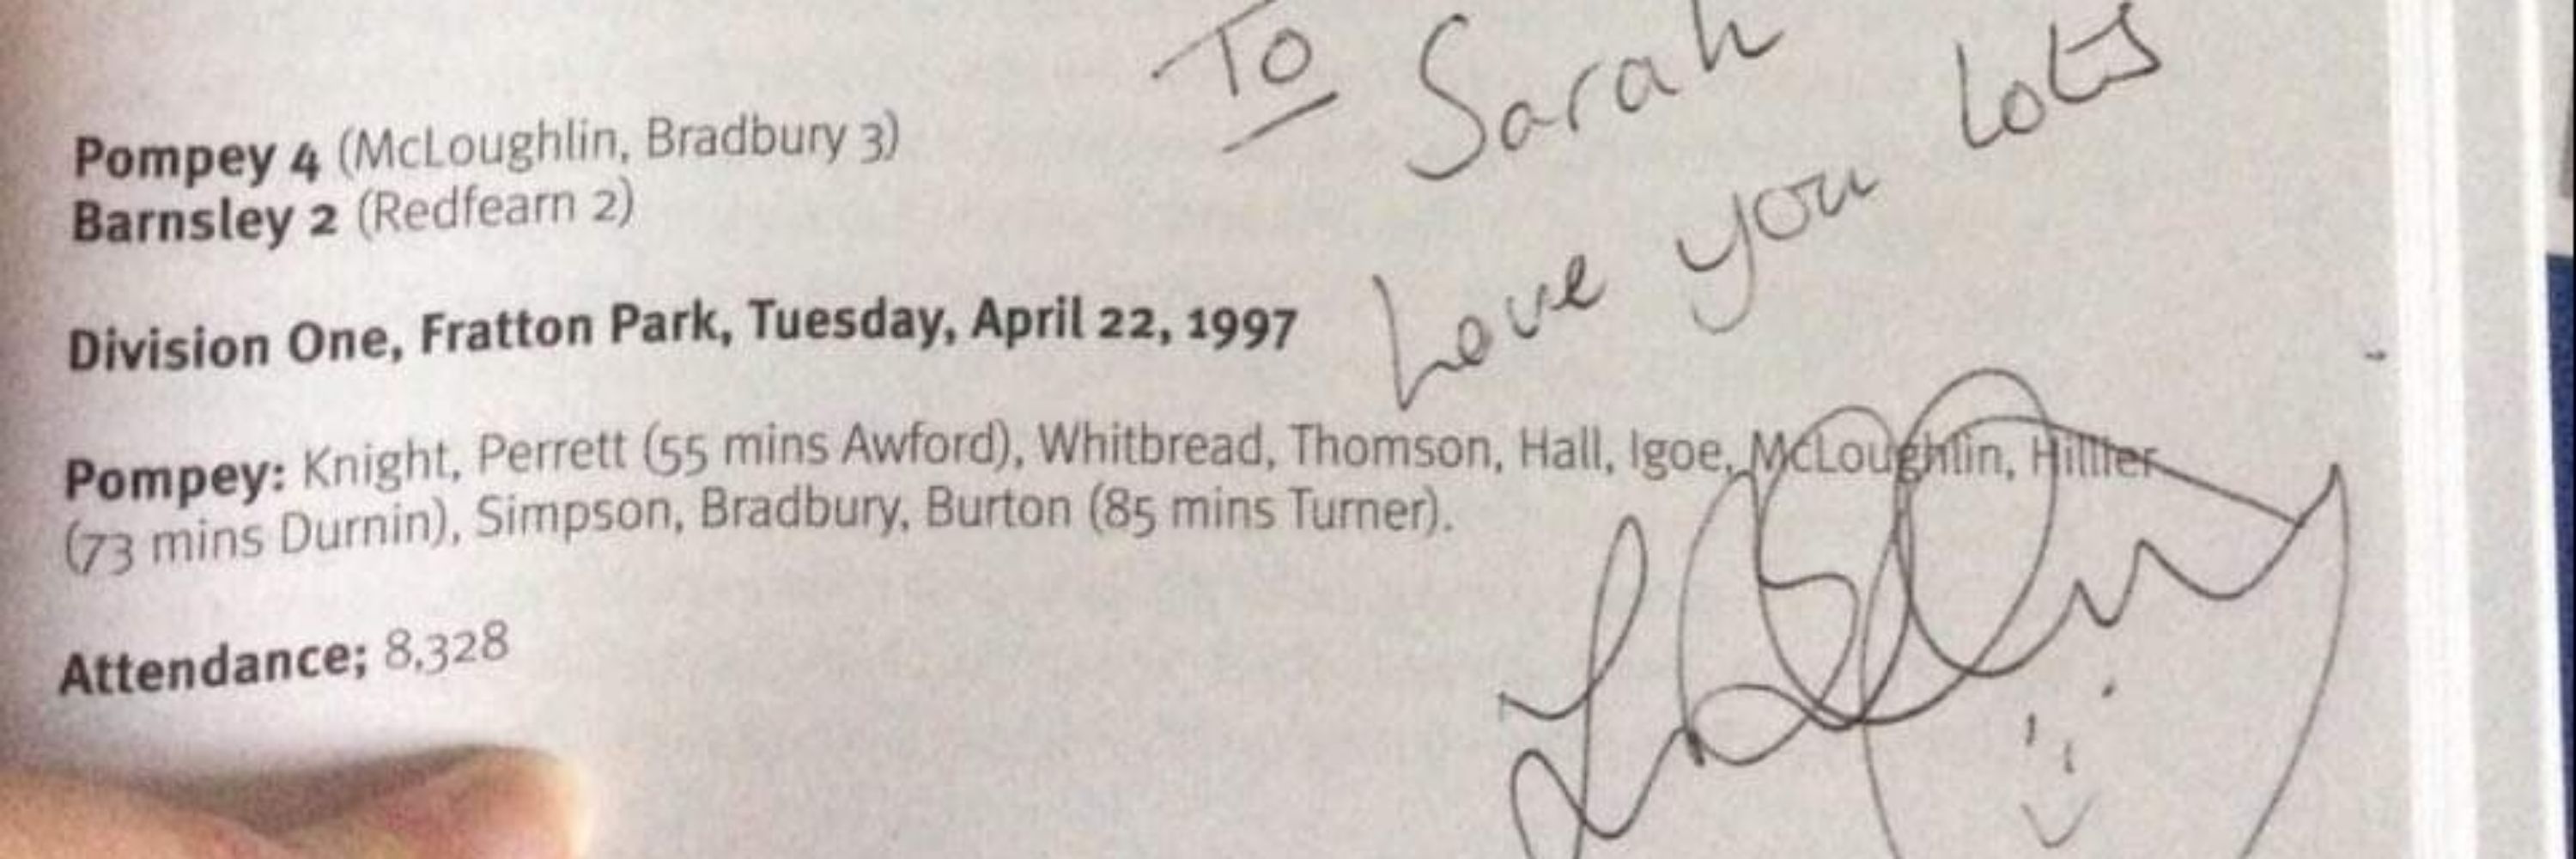 To Sarah
Love you lots
Pompey 4 (McLoughlin, Bradbury 3)
Barnsley 2 (Redfearn 2)
Division One, Fratton Park, Tuesday, April 22, 1997
Pompey: Knight, Perrett (55 mins Awford), Whitbread, Thomson, Hall, Igoe, McLoughlin, Hillier
(73 mins Durnin), Simpson, Bradbury, Burton (85 mins Turner).
Attendance; 8,328